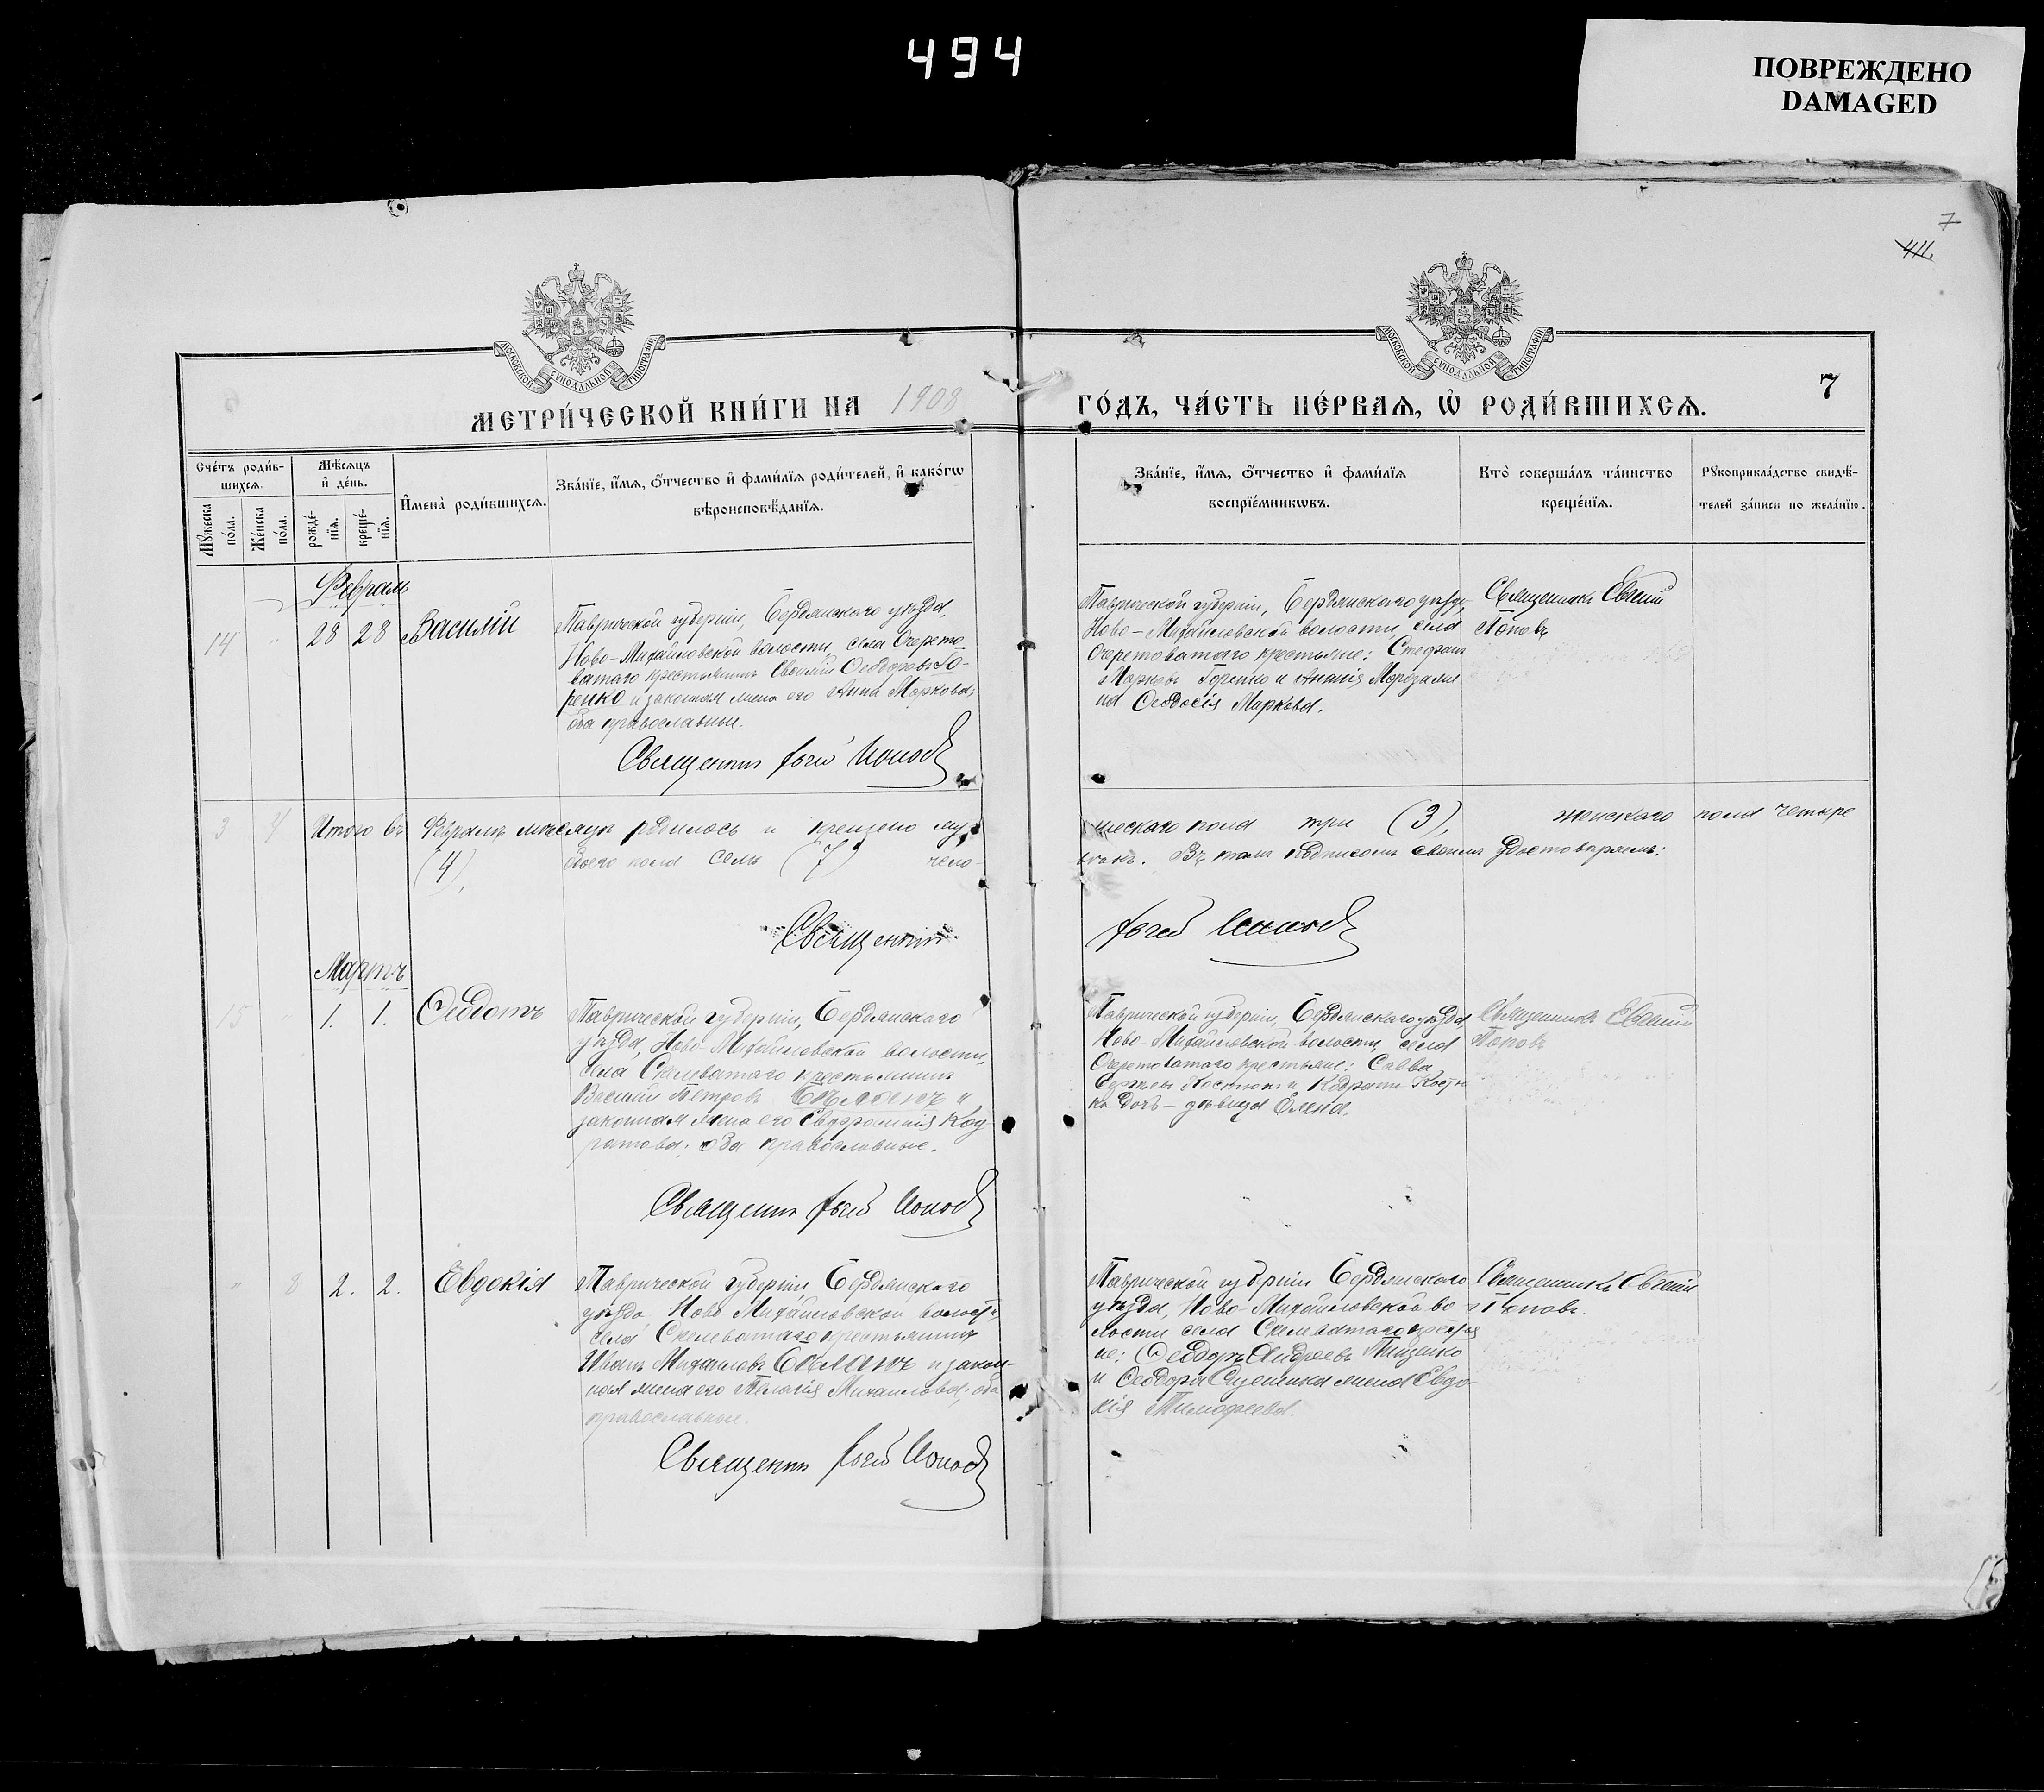 494
ПОВРЕЖДЕНО
DAMAGED
7
411.
МОСКОВСКОЙ СѴНОДАЛЬНОЙ ТИПОГРАФІИ
МОСКОВСКОЙ СѴНОДАЛЬНОЙ ТИПОГРАФІИ
МЕТРИ́ЧЕСКОЙ КНИ́ГИ НА 1908
ГО́ДЪ, ЧА́СТЬ ПЕ́РВАЯ, Ѡ҆ РОДИ́ВШИХСЯ.
7
Сче́тъ роди́в-
шихся.
Мꙋ́жеска
по́ла.
Же́нска
по́ла.
Мѣ́сяцъ
и҆ де́нь.
рожде́-
нїя.
креще́-
нїя.
И҆мена̀ роди́вшихся.
Зва́нїе, и҆́мя, ѻ҆́тчество и҆ фами́лїя роди́телей, и҆ како́гѡ
вѣроисповѣ́данїя.
Зва́нїе, и҆́мя, ѻ҆́тчество и҆ фами́лїя
воспрїе́мникѡвъ.
Кто̀ соверша́лъ та́инство
креще́нїя.
Рꙋкоприкла́дство свидѣ́-
телей за́писи по жела́нїю.
Февраль
14 " 28 28 Василій
Таврической губерніи, Бердянскаго уѣзда,
Ново-Михайловской волости, села Очерето-
ватаго крестьянинъ Ѳеодоровъ Го-
ренко и законная жена его Анна Маркова;
оба православные.
Священникъ Попов
Таврической губерніи, Бердянскаго уѣзда,
Ново-Михайловской волости, села
Очеретоватаго крестьяне: Стефанъ
Марковъ и
Ѳеодосія Маркова.
Священникъ Евгеній
Поповъ
3 4 Итого въ Февралѣ мѣсяцѣ родилось и крещено му-
жескаго пола три (3), женскаго пола четыре
(4), обоего пола семь (7) чело-
вѣкъ. Въ томъ подписомъ своимъ удостовѣряемъ:
Священникъ
Попов
Мартъ
15 " 1. 1. Ѳеодотъ
Таврической губерніи, Бердянскаго
уѣзда, Ново-Михайловской волости,
села Скелеватаго крестьянинъ
Василій Петровъ и
законная жена его Евфросинія Код-
ратова; оба православные.
Священникъ Попов
Таврической губерніи, Бердянскаго уѣзда,
Ново-Михайловской волости, села
Очеретоватаго крестьяне: Савва
Сергѣевъ Костюкъ и Кодрата Костю-
ка дочь - дѣвица Елена.
Священникъ Евгеній
Поповъ
" 8 2. 2. Евдокія
Таврической губерніи, Бердянскаго
уѣзда Ново-Михайловской волости,
села Скелеватаго крестьянинъ
Иванъ Михаиловъ и закон-
ная жена его Пелагія Михаилова; оба
православные.
Священникъ Попов
Таврической губерніи Бердянскаго
уѣзда, Ново-Михайловской во-
лости села Скелеватаго крестья-
не: Ѳеодоръ Андреевъ Тищенко
и Ѳеодора жена Евдо-
кія Тимофеева.
Священникъ Евгеній
Поповъ.